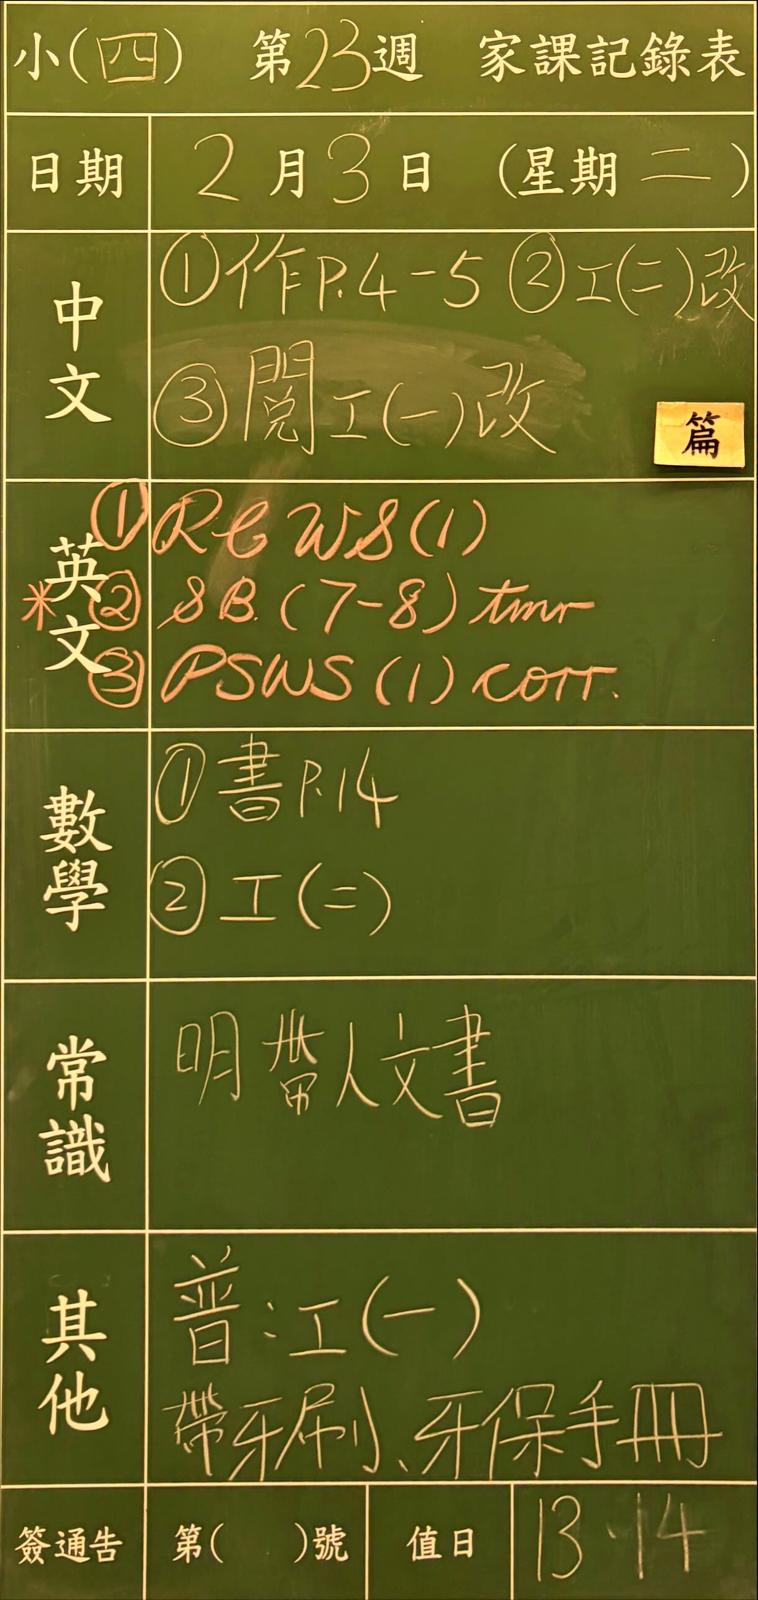 小(四) 第23週 家課記錄表
日期 2月3日 (星期二)
中文 ①作P.4-5 ②工(二)改
③閱工(一)改
篇
英文 ①RC WS(1)
*② SB.(7-8) tmr
③ PSWS(1) corr.
數學 ①書P.14
②工(二)
常識 明帶人文書
其他 普:工(一)
帶牙刷、牙保手冊
簽通告 第( )號 值日 13.14